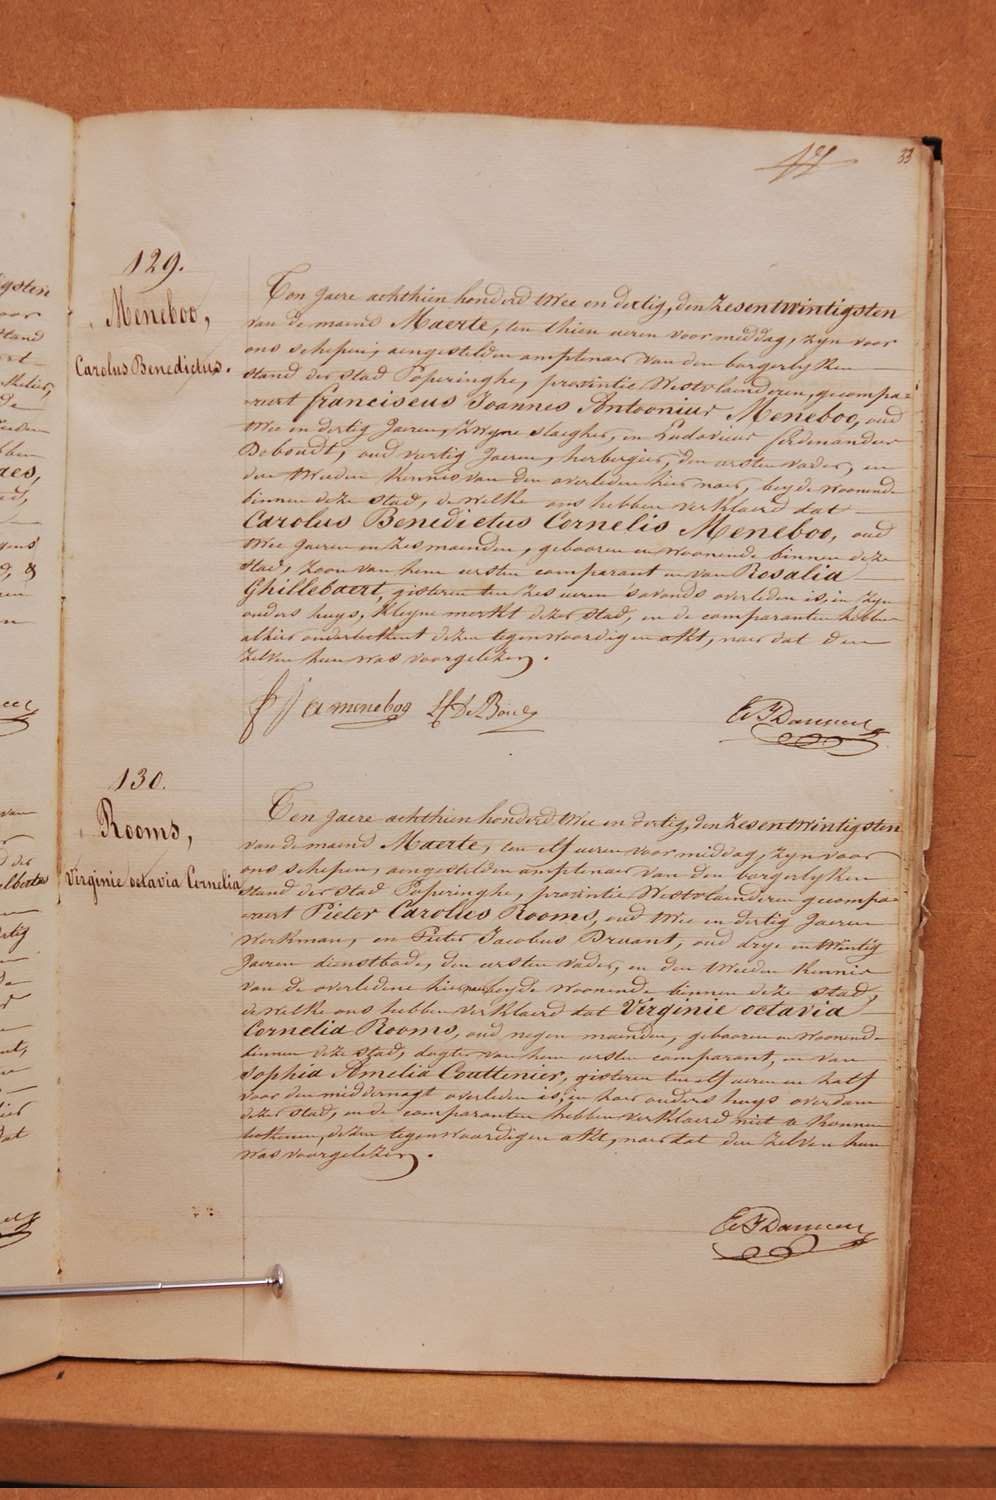 33
129.
Meneboo,
Carolus Benedictus.
Ten jaere achthien honderd twee en dertig, den zesentwintigsten
van de maend Maerte, ten thien ueren voor middag, zyn voor
ons schepen, aengestelden amptenaer van den borgerlyken
stand der stad Poperinghe, provintie Westvlaenderen, gecompa-
reert franciscus Joannes Antonius Meneboo, oud
twee en dertig Jaeren, zwyne slagher, en Ludovicus ferdinandus
Debondt, oud veertig Jaeren, herbergier, den eersten vader, en
den tweeden kennis van den overleden hier naer, beyde woonende
binnen deze stad, dewelke ons hebben verklaerd dat
Carolus Benedictus Cornelis Meneboo, oud
twee Jaeren en zes maenden, gebooren en woonende binnen deze
stad, zoon van hem eersten comparant en van Rosalia
Ghillebaert, gisteren ten zes ueren s'avonds overleden is, in zyn
ouders huys, Kleyne merkt dezer stad, en de comparanten hebben
alhier onderteekent dezen tegenwoordigen akt, naer dat den
zelven hun was voorgelezen.
meneboo
130.
Rooms,
Virginie octavia Cornelia
Ten jaere achthien honderd twee en dertig, den zesentwintigsten
van de maend Maerte, ten elf ueren voor middag, zyn voor
ons schepen, aengestelden amptenaer van den borgerlyken
stand der stad Poperinghe, provintie Westvlaenderen gecompa-
reert Pieter Carolus Rooms, oud twee en dertig Jaeren
werkman, en Pieter Jacobus Druant, oud drye en twintig
Jaeren dienstbode, den eersten vader, en den tweeden kennis
van de overledene hier naer beyde woonende binnen deze stad,
dewelke ons hebben verklaerd dat Virginie octavia
Cornelia Rooms, oud negen maenden, gebooren en woonende
binnen deze stad, dogter van hem eersten comparant, en van
Sophia Amelia Couttenier, gisteren ten elf ueren en half
voor den middernagt overleden is, in haer ouders huys overdam
dezer stad, en de comparanten hebben verklaerd niet te konnen
teekenen, dezen tegenwoordigen akt, naer dat den zelven hun
was voorgelezen.